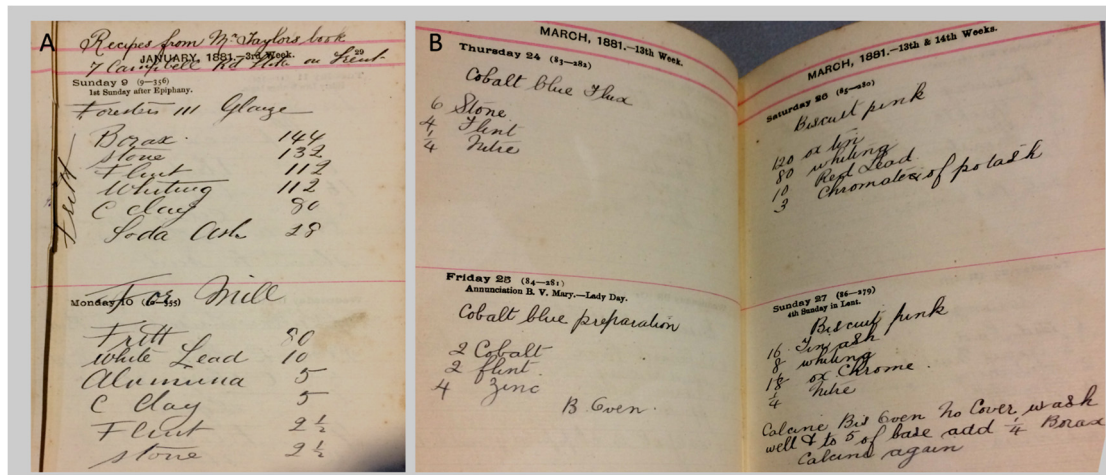 A
Recipes from Mr Taylors book
JANUARY, 1881.—3rd Week. 29
7 Campbell Rd Stoke on Trent
Sunday 9 (9—356)
1st Sunday after Epiphany.
Foresters 111 Glaze
Fritt
Borax 144
Stone 132
Flint 112
Whiting 112
C Clay 80
Soda Ash 28
Monday 10 (10—355)
For Mill
Fritt 90
White Lead 10
Alumuna 5
C Clay 5
Flint 2 1/2
Stone 2 1/2
B
MARCH, 1881.—13th Week.
Thursday 24 (83—282)
Cobalt blue Flux
6 Stone
4 Flint
1/4 Nitre
Friday 25 (84—281)
Annunciation B. V. Mary.—Lady Day.
Cobalt blue preparation
2 Cobalt
2 flint
4 Zinc
B Oven
MARCH, 1881.—13th & 14th Weeks.
Saturday 26 (85—280)
Biscuit pink
120 ox tin
80 whiting
10 Red Lead
3 Chromate of potash
Sunday 27 (86—279)
4th Sunday in Lent.
Biscuit pink
16 Tin ash
8 whiting
ox Chrome
1/4 Nitre
Calcine Bis Oven No Cover wash
well & to 5 of base add 1/4 Borax
Calcine again